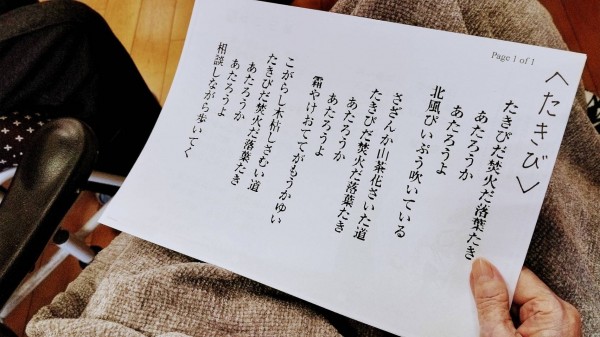 Page 1 of 1
＜たきび＞
たきびだ焚火だ落葉たき
あたろうか
あたろうよ
北風ぴいぷう吹いている
さざんか山茶花さいた道
たきびだ焚火だ落葉たき
あたろうか
あたろうよ
霜やけおててがもうかゆい
こがらし木枯しさむい道
たきびだ焚火だ落葉たき
あたろうか
あたろうよ
相談しながら歩いてく